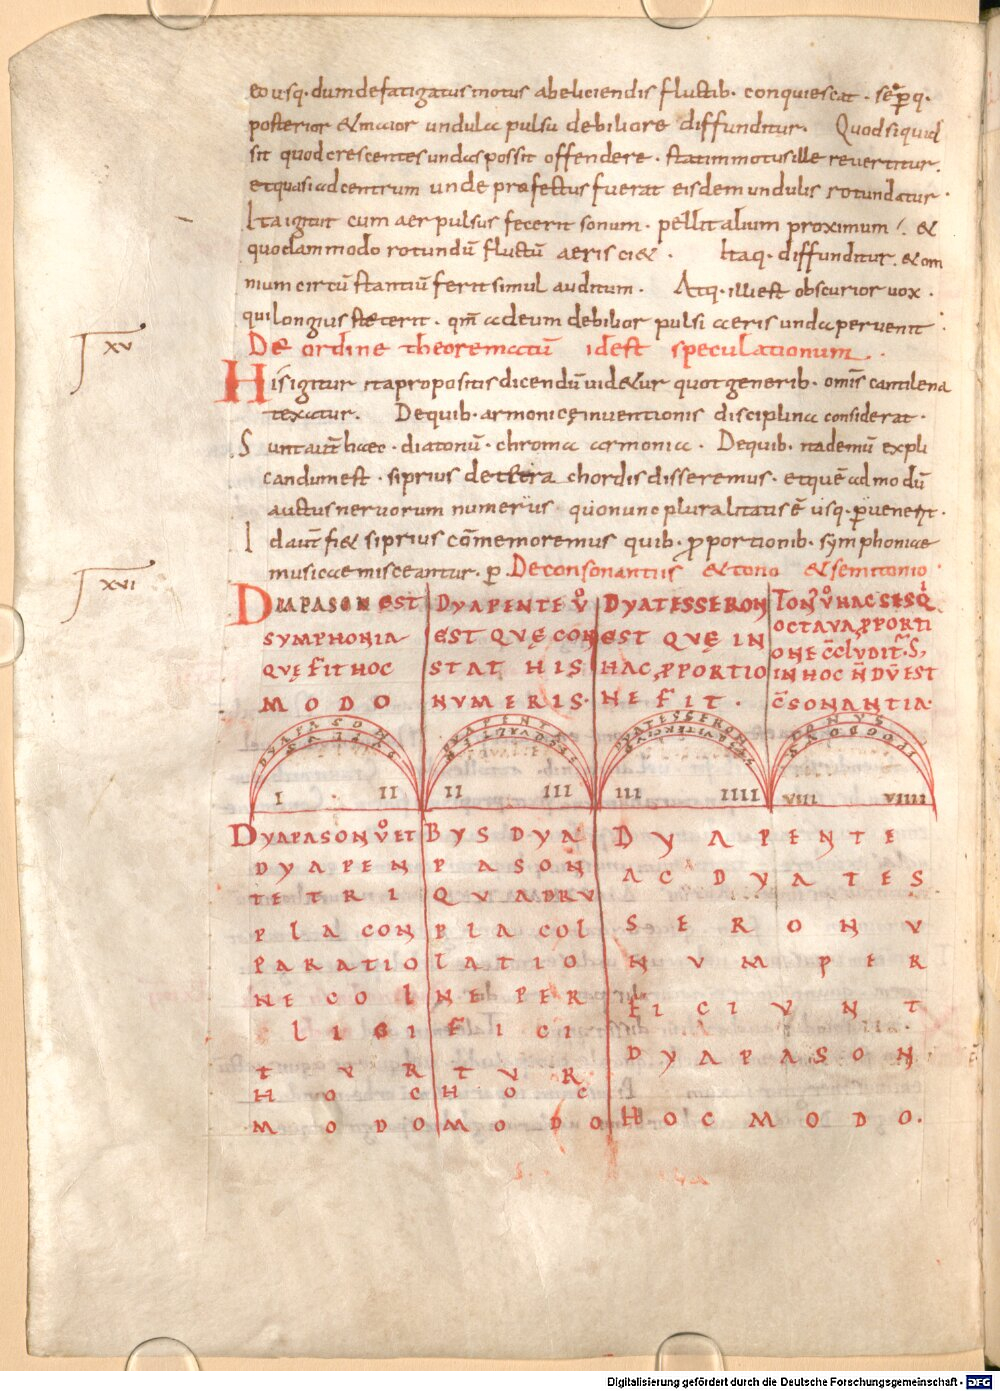 eousq· dum defatigatus motus abeliciendis fluctib· conquiescat · seꝑq·
posterior & maior undula pulsu debiliore diffunditur· Quod siquid
sit quod crescentes undas possit offendere · statim motus ille revertitur·
et quasi ad centrum unde profectus fuerat eisdem undulis rotundatur·
Ita igitur cum aer pulsus fecerit sonum · pellit alium proximum · &
quodammodo rotundū fluctū aeris ci& · Itaq· diffunditur· & om
nium circū stantiū ferit simul auditum · Atq· illi est obscurior vox ·
qui longius steterit · qm̄ ad eum debilior pulsi aeris unda pervenit ·
XV
De ordine theorematū id est speculationum ·
His igitur ita propositis dicendū vid&ur quot generib· omis cantilena
texatur · De quib· armonicę inventionis disciplina considerat ·
Sunt aut̄ haec · diatonū · chroma armonia · De quib· ita demū expli
candum est · si prius de t&tra chordis disseremus · et quē ad modū
auctus nervorum numerus quo nunc pluralitatis ē usq· ꝑvenerit ·
Id aut̄ fi& si prius cōmemoremus quib· ꝓportionib· symphoniae
musicae misceantur · De consonantiis & tono & semitonio
XVI
DIAPASON EST
SYMPHONIA
QVĘ FIT HOC
MODO
DYAPENTE V̊
EST QVĘ CON
STAT HIS
NVMERIS·
DYATESSERON
EST QVĘ IN
HAC ꝓPORTIO
NE FIT ·
TON' V̊ HAC SESQ
OCTAVA ꝓPORTI
ONE C̄CLVDIT' · S,
IN HOC N̄DV̄ EST
C̄SONANTIA·
DYAPASON
DVPLA
I II
DYAPENTE
SESQVALTERA
II III
DYATESSERON
SESQVITERCIA
III IIII
TONVS
VIII VIIII
DYAPASON V̊ ET
DYAPEN
TE TRI
PLA CON
PARATIO
NE COL
LIGI
TVR
HOC
MODO
BYS DYA
PASON
QVADRV
PLA COL
LATIO
NE PER
FICI
TVR
HOC
MODO
DYAPENTE
AC DYATES
SERON V
NVM PER
FICIVNT
DYAPASON
HOC MODO.
Digitalisierung gefördert durch die Deutsche Forschungsgemeinschaft - DFG